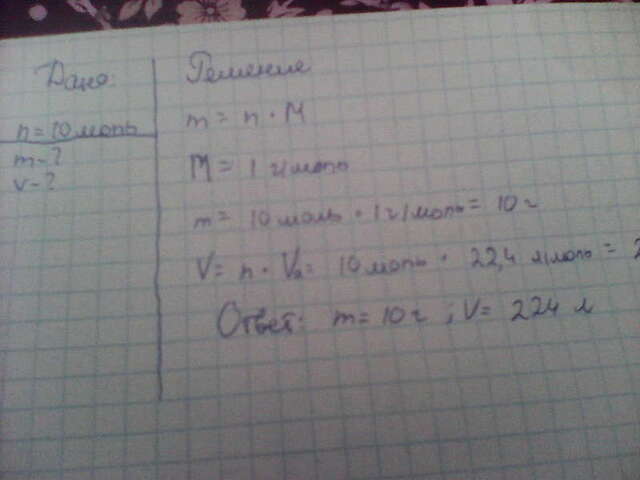 Дано:
n = 10 моль
m - ?
v - ?
Решение
m = n · M
M = 1 г/моль
m = 10 моль · 1 г/моль = 10 г
V = n · Vm = 10 моль · 22,4 л/моль = 2
Ответ: m = 10 г ; V = 224 л